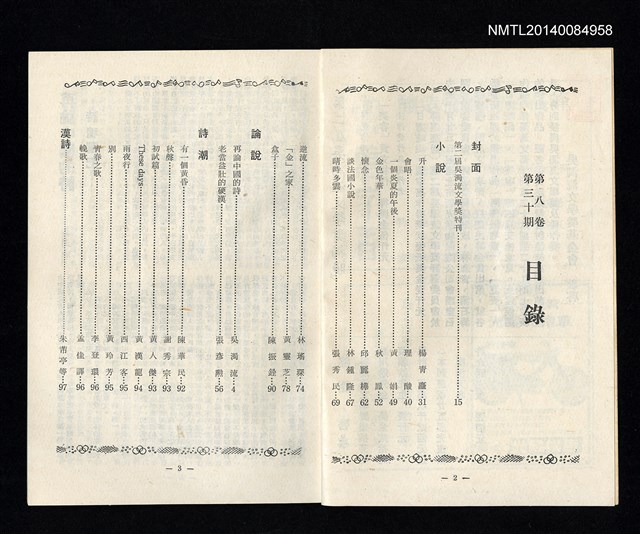 NMTL20140084958
第八卷
第三十期
目錄
封面
第二屆吳濁流文學獎特刊 15
小說
升 楊青矗 31
會晤 理酸 40
一個炎夏的午後 黃娟 49
金色年華 秋鳳 52
懷念 邱麗樺 62
談法國小說 林鍾隆 67
晴時多雲 張秀民 69
— 2 —
逝流 林瑤琛 74
「金」之家 黃靈芝 78
盒子 陳振銓 90
論說
再論中國的詩 吳濁流 4
老當益壯的硬漢 張彥勲 56
詩潮
有一個黃昏 陳華民 92
秋聲 謝秀宗 93
初試篇 黃人傑 93
These days 黃漢龍 94
雨夜行 西江客 95
別 黃玲芳 95
青春之歌 李登環 96
輓歌 孟佳譯 96
漢詩 朱芾亭等 97
— 3 —